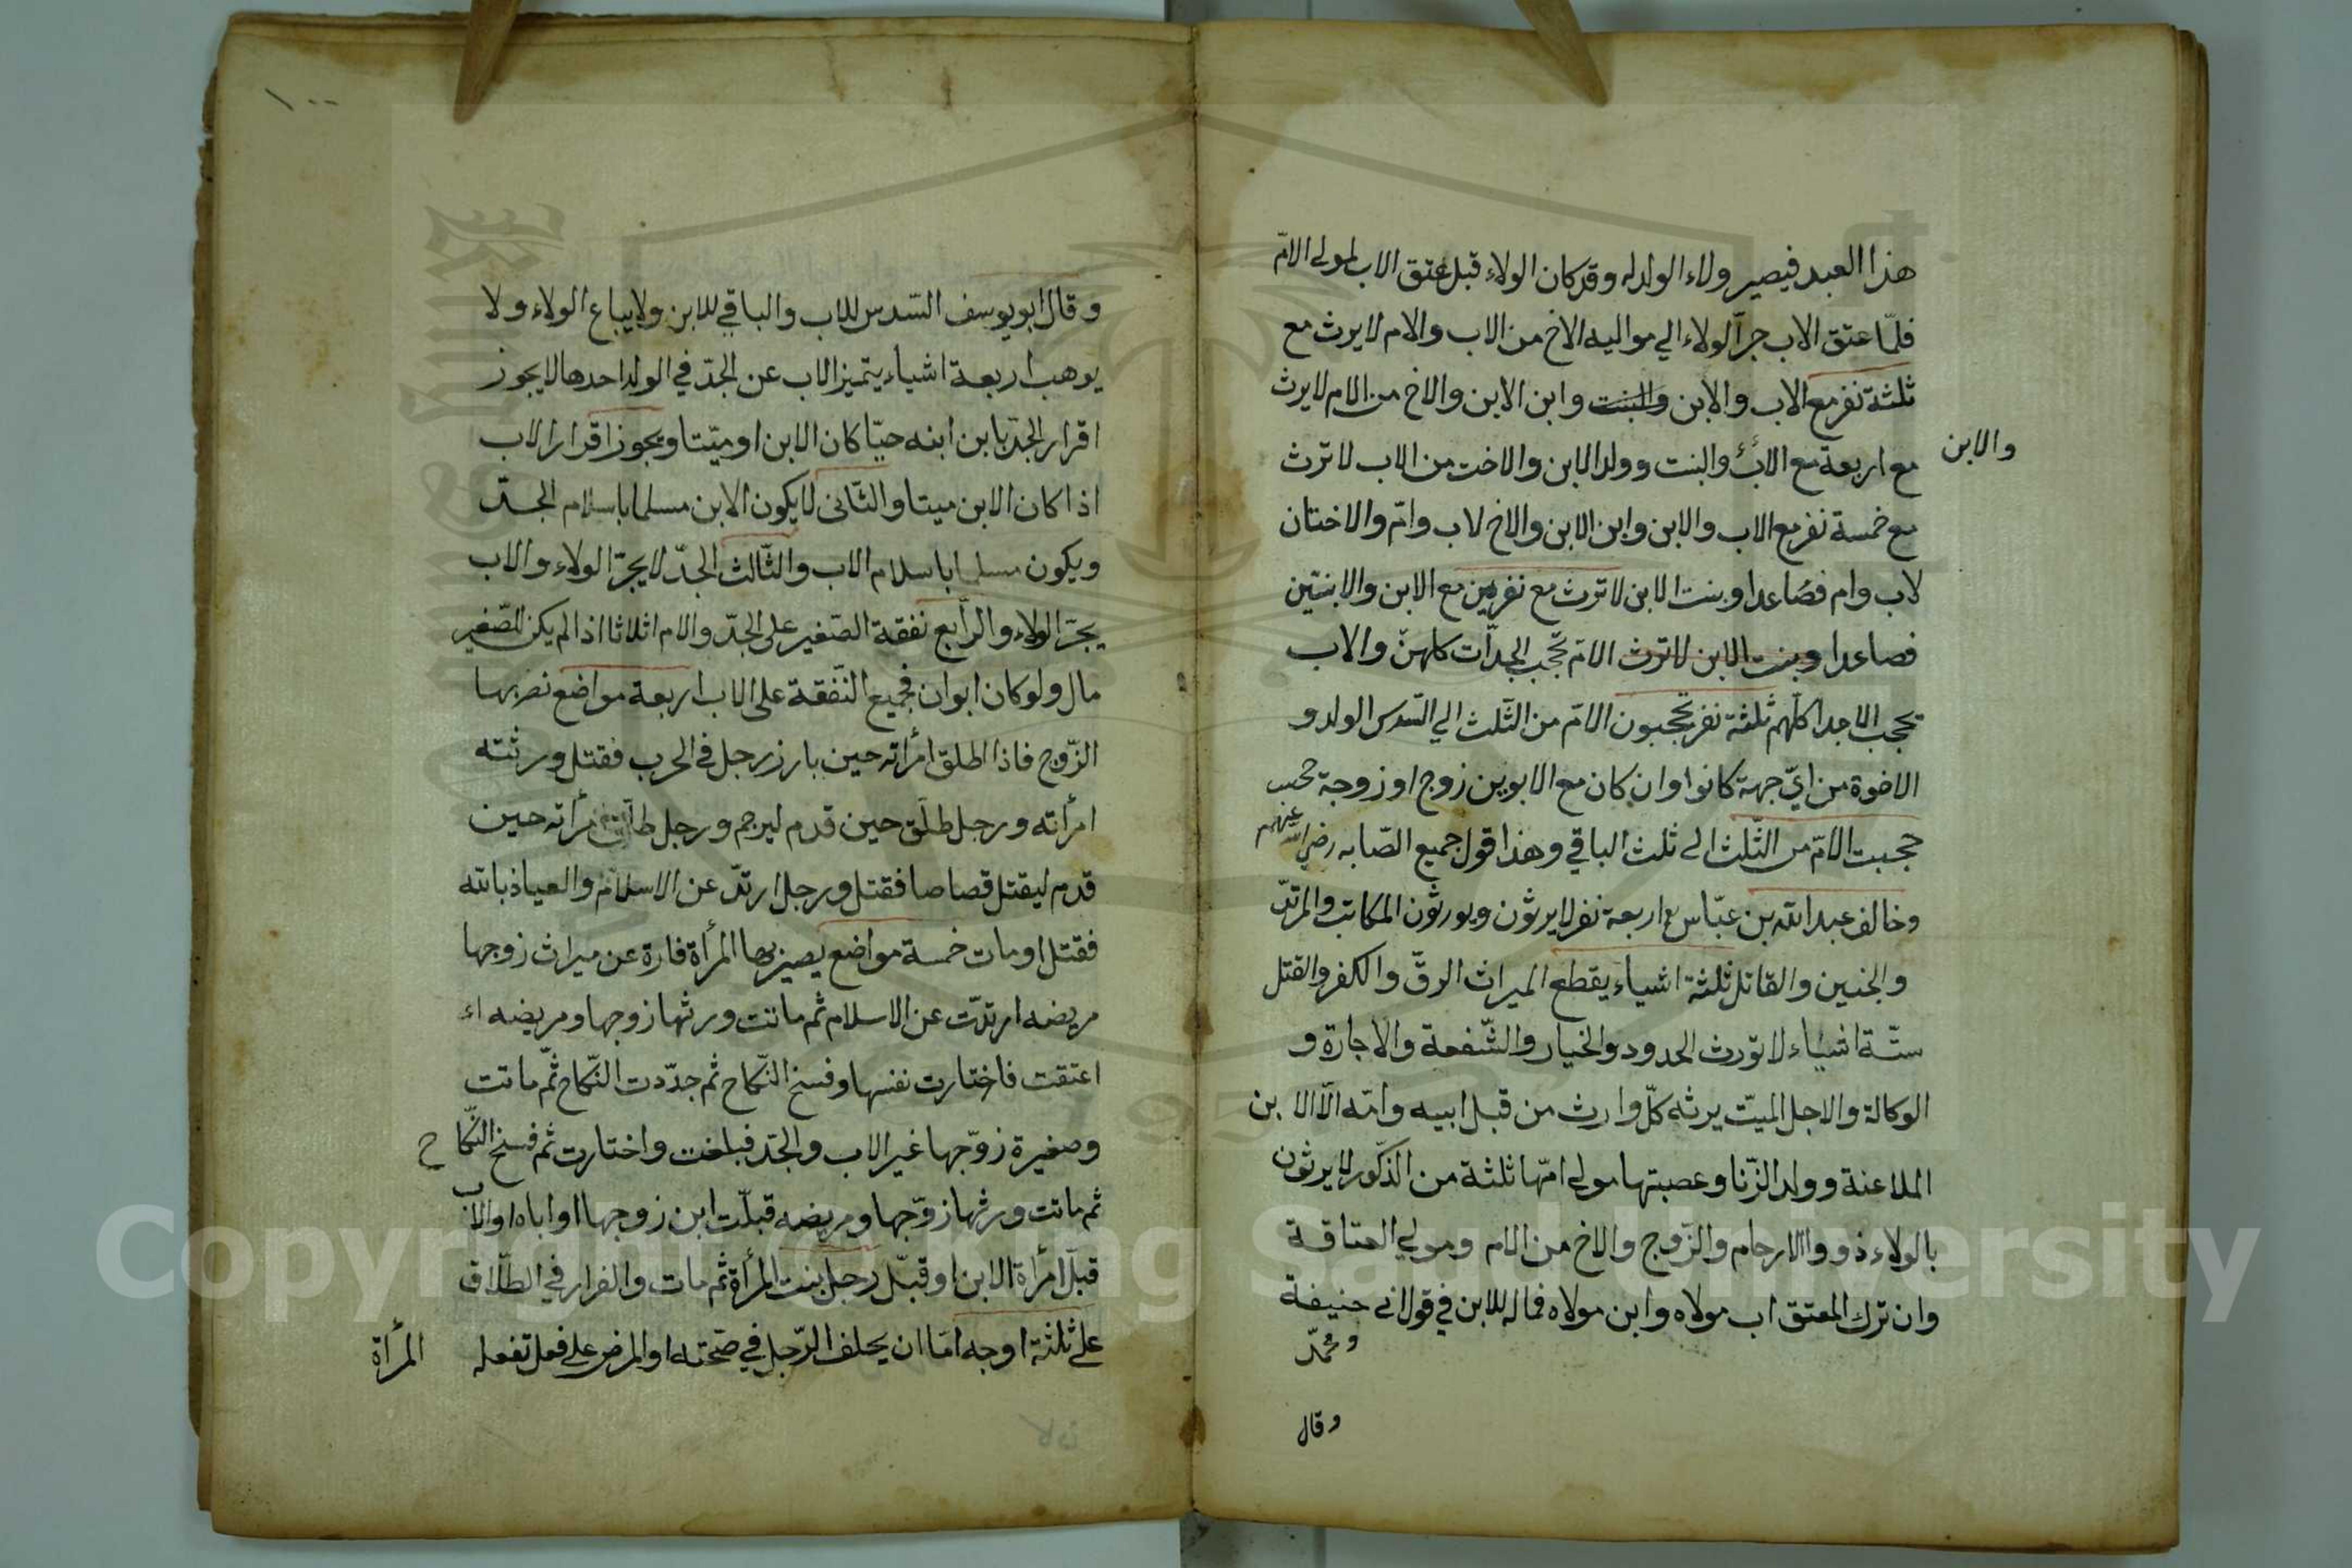 هذا العبد فيصير ولاء الولد له وقد كان الولاء قبل عتق الاب لمولى الامّ
فلمّا عتق الاب جرّ الولاء الي مواليه الاخ من الاب والام لا يرث مع
ثلثة نفر مع الاب والابن والبنت وابن الابن والاخ من الام لا يرث
والابن
مع اربعة مع الاب والبنت وولد الابن والاخت من الاب لا ترث
مع خمسة نفر مع الاب والابن وابن الابن والاخ لاب وامّ والاختان
لاب وام فصاعدا وبنت الابن لا ترث مع نفرين مع الابن والابنتين
فصاعدا وبنت الابن لا ترث الامّ تحجب الجدّات كلهنّ والاب
يحجب الاجداد كلّهم ثلثة نفر يحجبون الامّ من الثّلث الي السّدس الولد و
الاخوة من ايّ جهة كانوا وان كان مع الابوين زوج او زوجة
حجبت الامّ من الثّلث الى ثلث الباقي وهذا قول جميع الصّابه رضي الله عنهم
وخالف عبد الله بن عبّاس اربعة نفر لا يرثون ويورثون المكاتب والمرتدّ
والجنين والقاتل ثلثة اشياء يقطع الميراث الرقّ والكفر والقتل
ستّة اشياء لا تورث الحدود والخيار والشّفعة والاجارة و
الوكالة والاجل الميّت يرثه كلّ وارث من قبل ابيه وامّه الّا الابن
الملاعنة وولد الزّنا وعصبتها مولى امّها ثلثة من الذّكور لا يرثون
بالولاء ذووا الارحام والزّوج والاخ من الام ومولي العتاقة
وان ترك المعتق اب مولاه وابن مولاه فماله للابن في قول ابى حنيفة
ومحمّد
وقال
١٠٠
وقال ابو يوسف السّدس للاب والباقي للابن ولا يباع الولاء ولا
يوهب اربعة اشياء يتميز الاب عن الجدّ في الولد احدها لا يجوز
اقرار الجدّ بابن ابنه حيّا كان الابن او ميّتا ويجوز اقرار الاب
اذا كان الابن ميتا والثّانى لا يكون الابن مسلما باسلام الجدّ
ويكون مسلما باسلام الاب والثّالث الجدّ لا يجرّ الولاء والاب
يجرّ الولاء والرّابع نفقة الصّغير على الجدّ والام اثلاثا اذا لم يكن للصّغير
مال ولو كان ابوان فجميع النّفقة على الاب اربعة مواضع نصر بها
الزّوج فاذا طلق امرأته حين بارز رجل في الحرب فقتل ورثته
امرأته ورجل طلّق حين قدم ليرجم ورجل طلّق امرأته حين
قدم ليقتل قصاصا فقتل ورجل ارتدّ عن الاسلام والعياذ بالله
فقتل او مات خمسة مواضع يصير بها المرأة فارة عن ميراث زوجها
مريضه ارتدّت عن الاسلام ثم ماتت ورثها زوجها ومريضه
اعتقت فاختارت نفسها وفسخ النّكاح ثم جدّدت النّكاح ثمّ ماتت
وصغيرة زوّجها غير الاب والجدّ فبلغت واختارت ثم فسخ النّكاح
ثم ماتت ورثها زوّجها ومريضه قبلّت ابن زوجها او اباه او الاب
قبّل امرأة الابن او قبّل رجل بنت المرأة ثم مات والفرار في الطّلاق
على ثلثة اوجه امّا ان يحلف الرّجل في صحّته او المرض على فعل تفعله
المرأة
Copyright © King Saud University